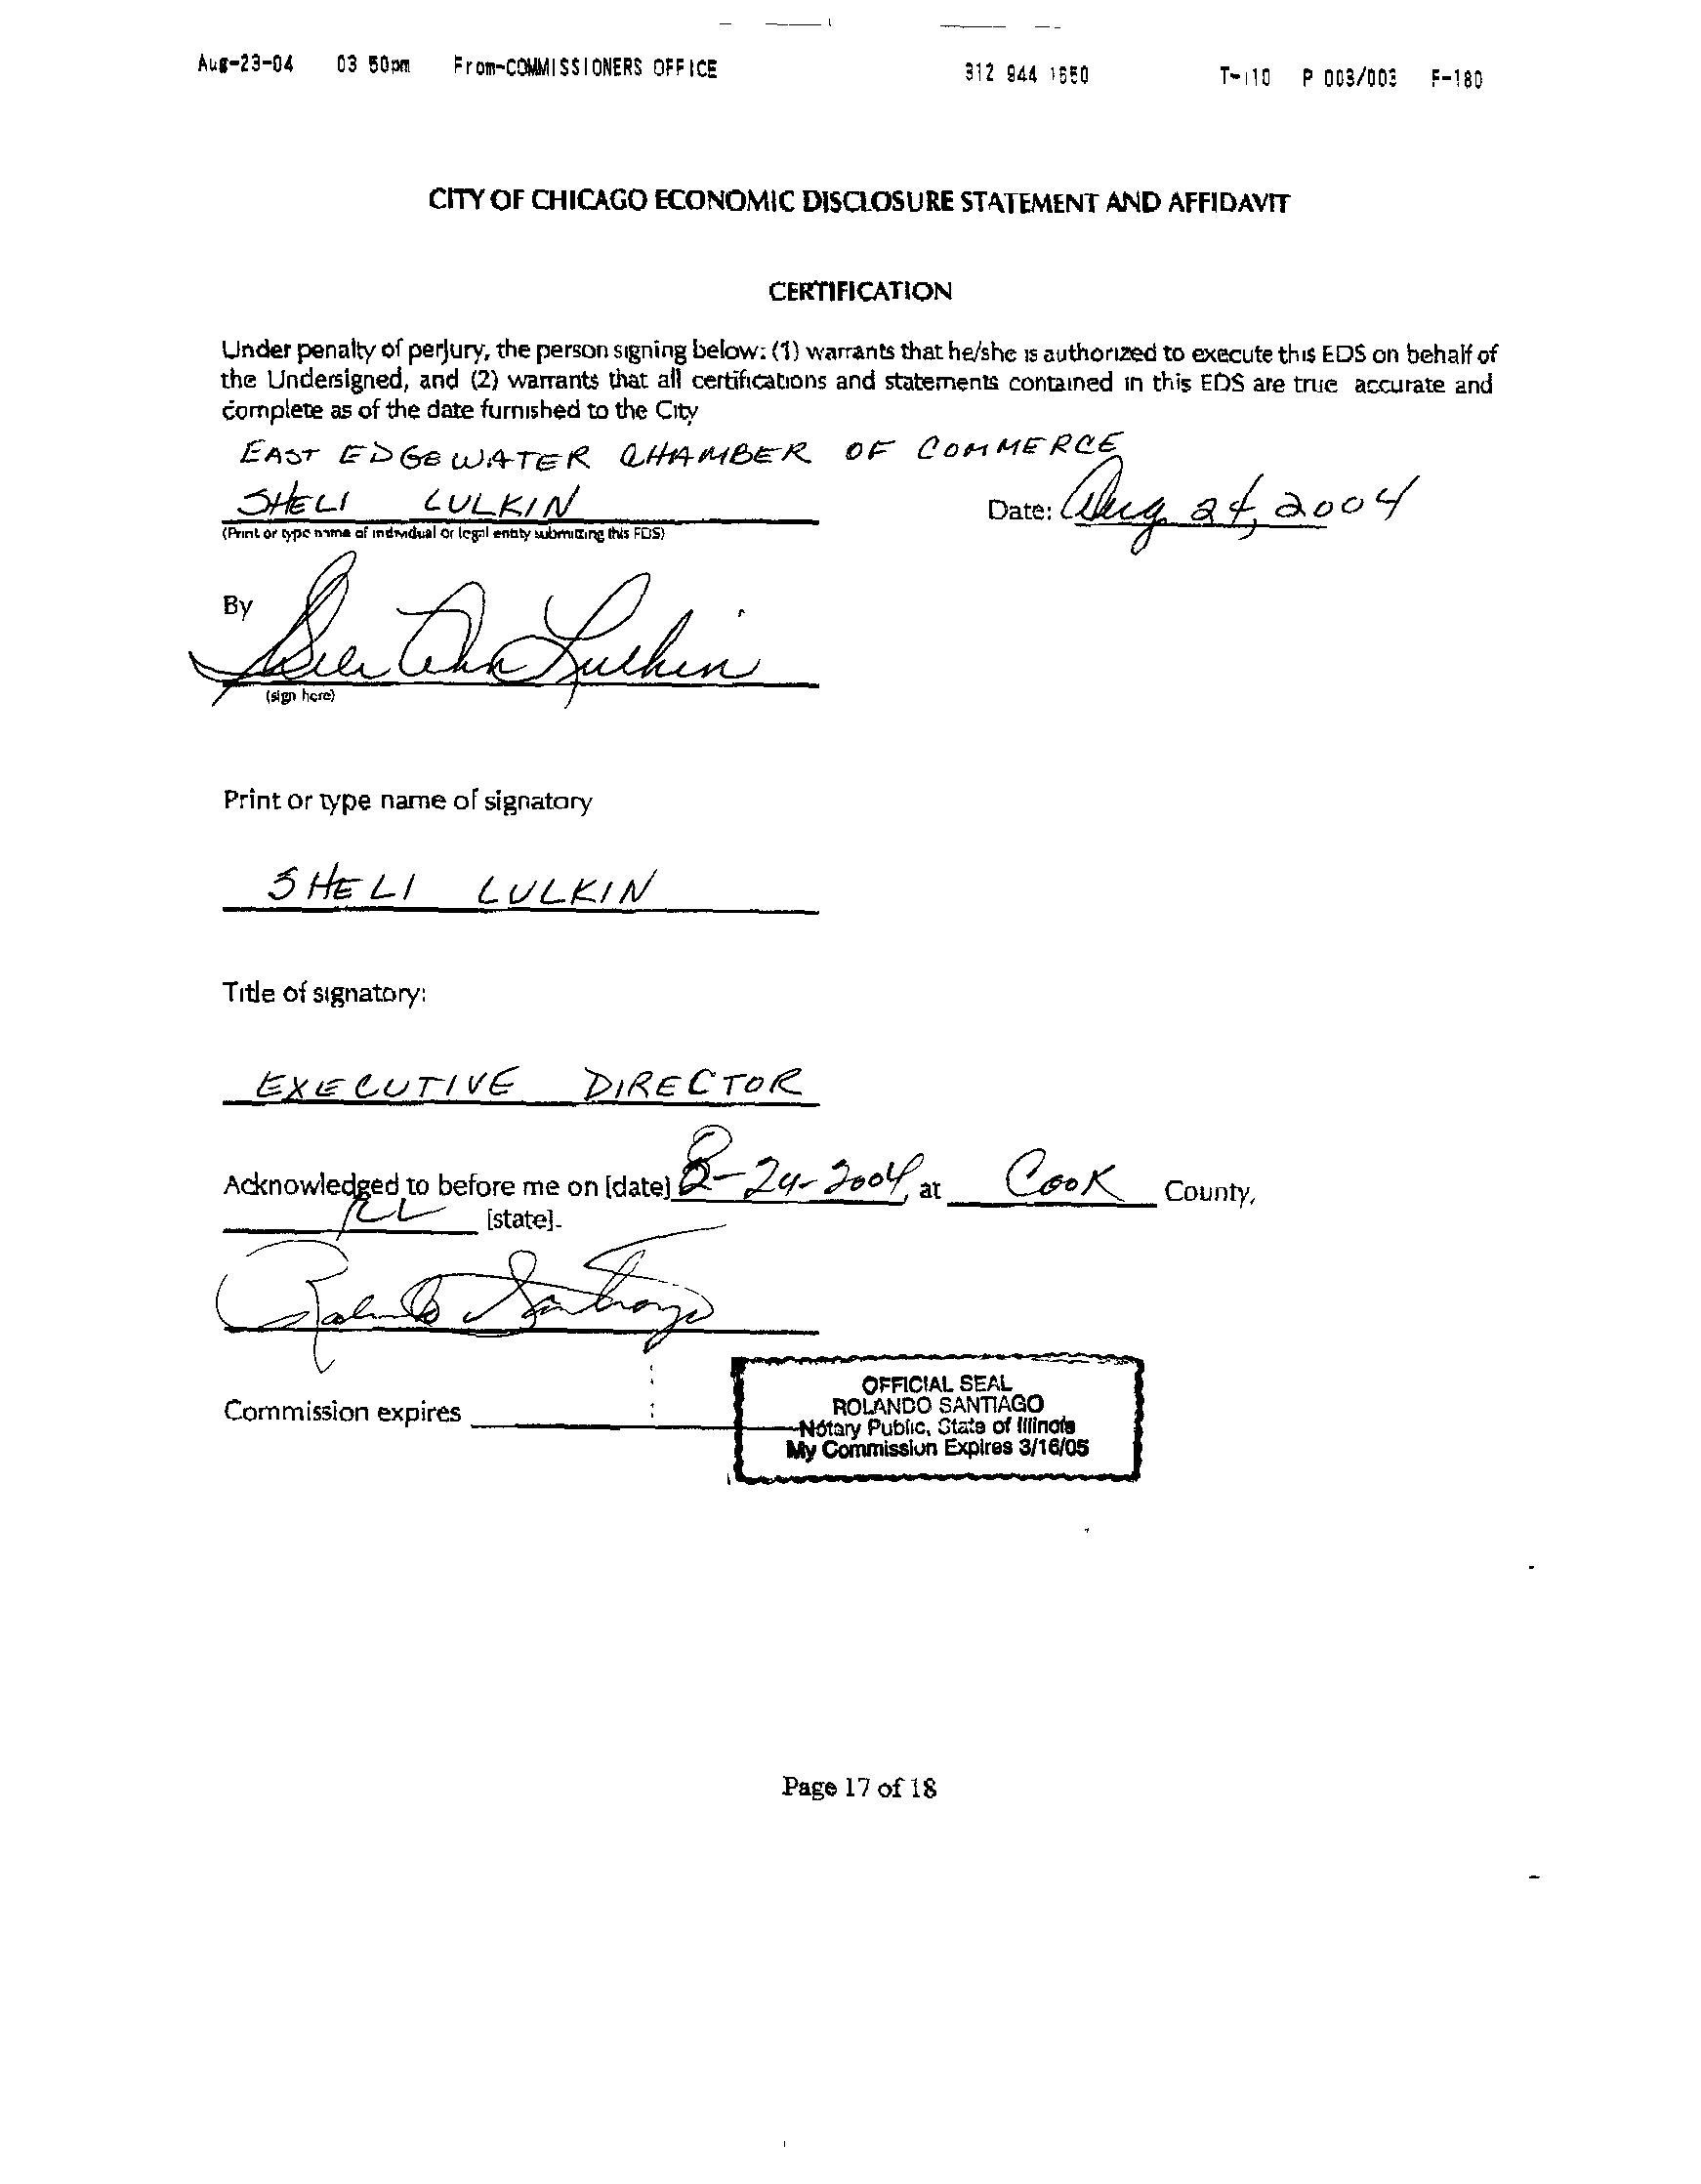 Aug-23-04 03 50pm From-COMMISSIONERS OFFICE 312 944 1650 T-110 P 003/003 F-180
CITY OF CHICAGO ECONOMIC DISCLOSURE STATEMENT AND AFFIDAVIT
CERTIFICATION
Under penalty of perjury, the person signing below: (1) warrants that he/she is authorized to execute this EDS on behalf of
the Undersigned, and (2) warrants that all certifications and statements contained in this EDS are true accurate and
complete as of the date furnished to the City
EAST EDGEWATER CHAMBER OF COMMERCE
SHELI LULKIN Date: Aug 24, 2004
(Print or type name of individual or legal entity submitting this EDS)
By
Lulkin
(sign here)
Print or type name of signatory
SHELI LULKIN
Title of signatory:
EXECUTIVE DIRECTOR
Acknowledged to before me on [date] 8-24-2004, at Cook County,
IL [state].
Rolando Santiago
Commission expires
OFFICIAL SEAL
ROLANDO SANTIAGO
Notary Public, State of Illinois
My Commission Expires 3/16/05
Page 17 of 18